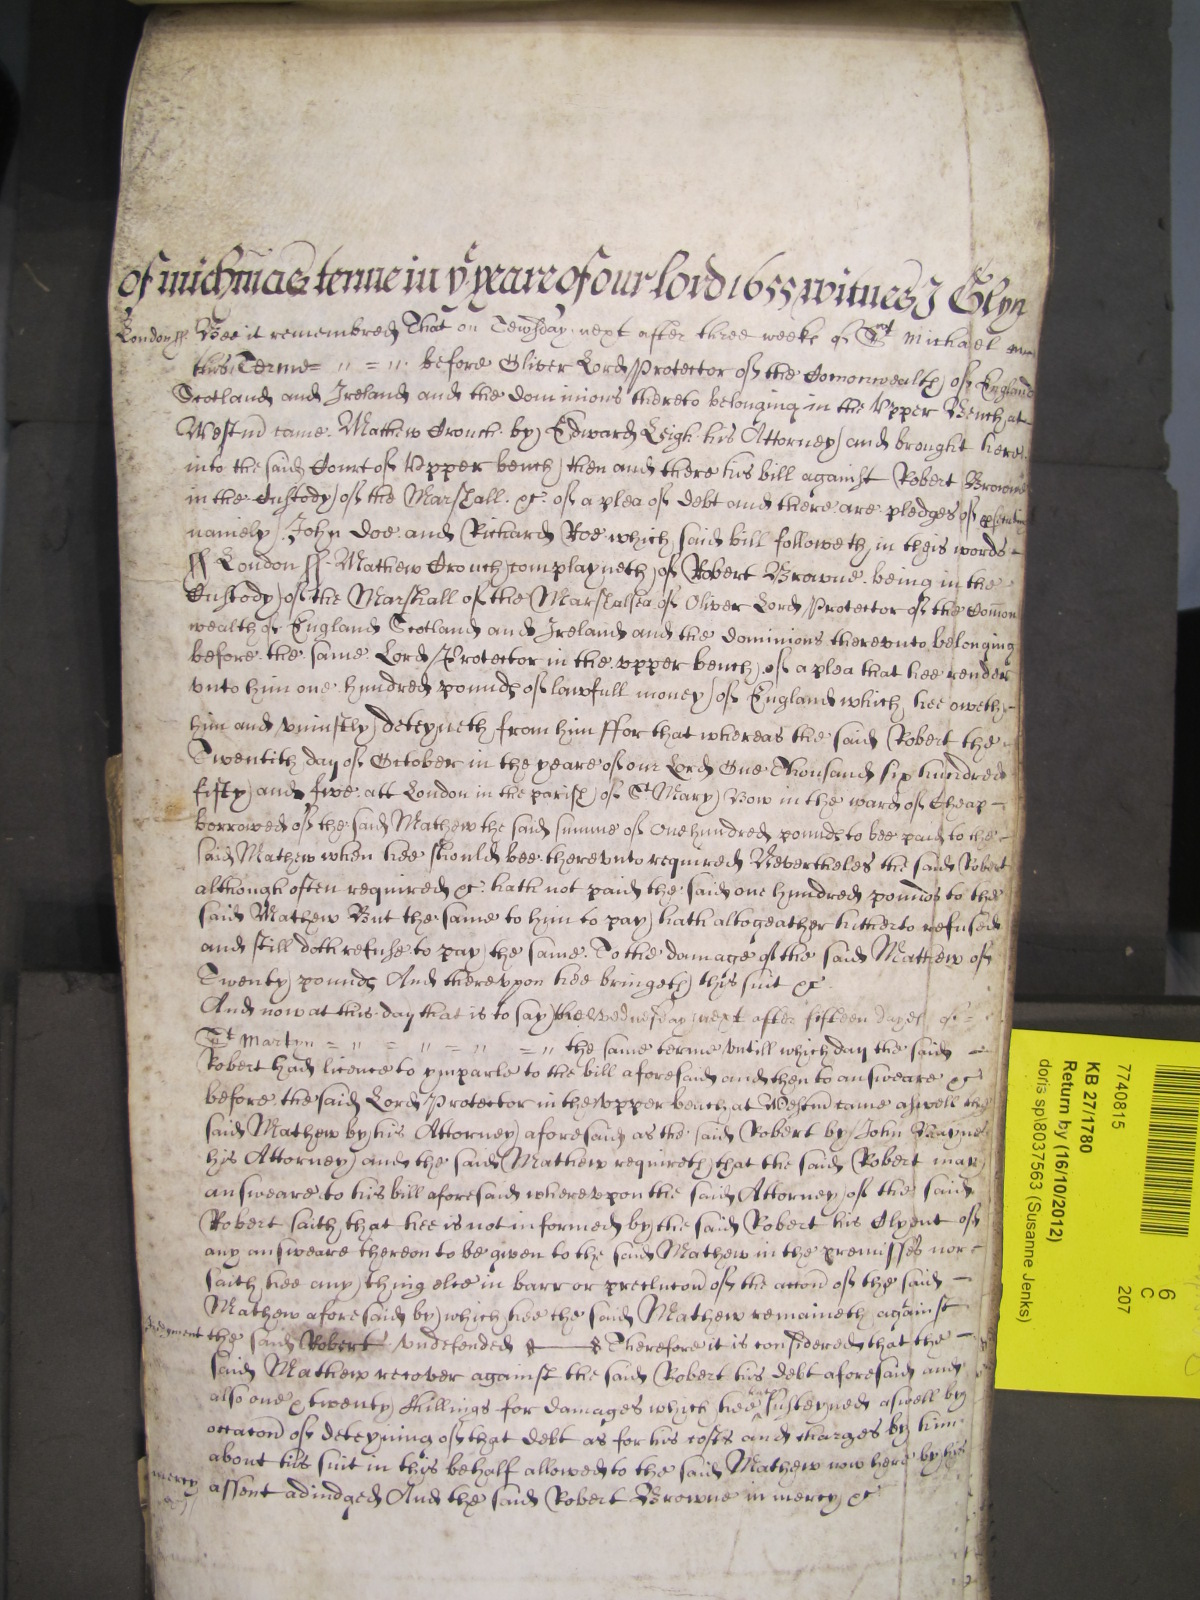 of Michmas terme in ye yeare of our lord 1655 witnes J Glyn
London ss Bee it remembred That on Tewsday next after three weeks of St Michael
this Terme = " = " before Oliver Lord Protector of the Comonwealth of England
Scotland and Ireland and the dominions thereto belonging in the Upper Bench at
Westmr came Mathew Crouch by Edward Leigh his Attorney and brought here
into the said Court of Upper bench then and there his bill against Robert Browne
in the Custody of the Marshall &c of a plea of debt and there are pledges of
namely John Doe and Richard Roe which said bill followeth in theis words
ss London ss Mathew Crouch complayneth of Robert Browne being in the
Custody of the Marshall of the Marshalsea of Oliver Lord Protector of the Comon
wealth of England Scotland and Ireland and the dominions thereunto belonging
before the same Lord Protector in the upper bench of a plea that hee render
unto him one hundred pounds of lawfull money of England which hee oweth
him and uniustly deteyneth from him ffor that whereas the said Robert the
Twentith day of October in the yeare of our Lord One Thousand six hundred
fifty and five att London in the parish of St Mary Bow in the ward of Cheap
borrowed of the said Mathew the said summe of one hundred pounds to bee paid to the
said Mathew when hee should bee thereunto required Neverthelese the said Robert
although often required &c hath not paid the said one hundred pounds to the
said Mathew But the same to him to pay hath altogeather hitherto refused
and still doth refuse to pay the same To the damage of the said Mathew of
Twenty pounds And thereupon hee bringeth this suit &c
And now at this day that is to say the Wednesday next after fifteen dayes of
St Martyn = " = " = " = " the same terme untill which day the said
Robert had licence to ymparle to the bill aforesaid and then to answeare &c
before the said Lord Protector in the upper bench at Westmr came aswell the
said Mathew by his Attorney aforesaid as the said Robert by John
his Attorney and the said Mathew requireth that the said Robert may
answeare to his bill aforesaid whereupon the said Attorney of the said
Robert saith that hee is not informed by the said Robert his Clyent of
any answeare thereon to be given to the said Mathew in the premisses nor
saith hee any thing else in barr or preclucon of the accon of the said
Mathew aforesaid by which hee the said Mathew remaineth against
Judgment the said Robert undefended Therefore it is considered that the
said Mathew recover against the said Robert his debt aforesaid and
also one & twenty shillings for damages which hee hath susteyned aswell by
occacon of deteyning of that debt as for his costs and charges by him
about his suit in this behalf allowed to the said Mathew now here by his
mercy assent adiudged And the said Robert Browne in mercy &c
7740815
KB 27/1780
Return by (16/10/2012)
doris sp\8037563 (Susanne Jenks)
6
C
207